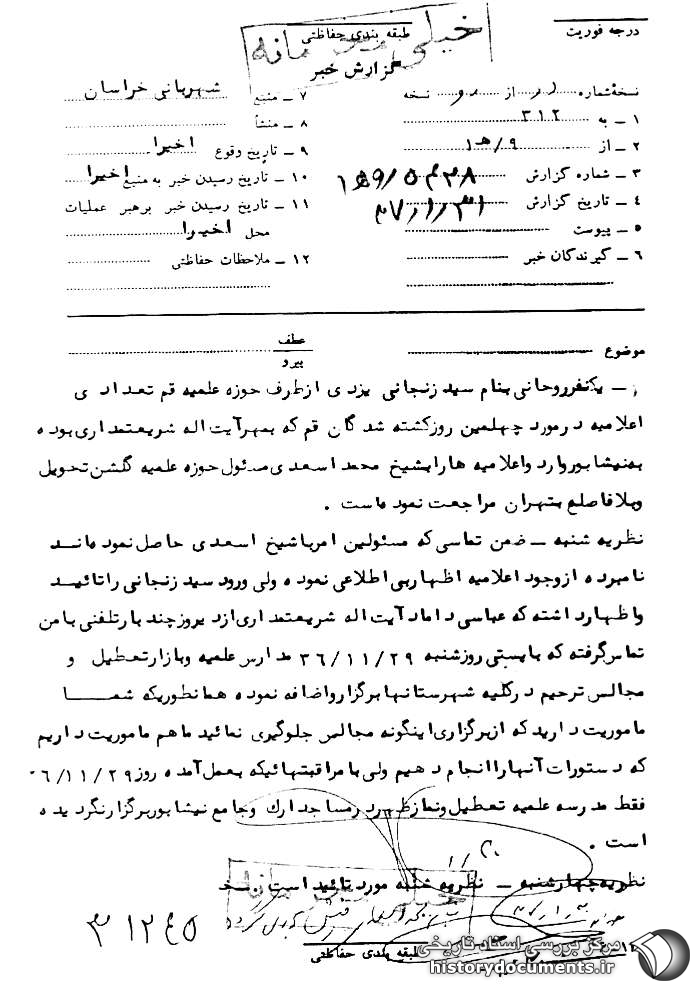 درجه فوریت
طبقه بندی حفاظتی
خیلی محرمانه
گزارش خبر
نسخهٔ شماره از دو نسخه
۱ ـ به ۳۱۲
۲ ـ از ۹/ﻫ۱
۳ ـ شماره گزارش
۴ ـ تاریخ گزارش ۳۷/۱/۳۱
۵ ـ پیوست
۶ ـ گیرندگان خبر
۷ ـ منبع شهربانی خراسان
۸ ـ منشأ
۹ ـ تاریخ وقوع اخیرا
۱۰ ـ تاریخ رسیدن خبر به منبع اخیرا
۱۱ ـ تاریخ رسیدن خبر برهبر عملیات
محل اخیرا
۱۲ ـ ملاحظات حفاظتی
موضوع
عطف
پیرو
ـ یکنفرروحانی بنام سید زنجانی یزدی ازطرف حوزه علمیه قم تعدادی
اعلامیه درمورد چهلمین روزکشته شدگان قم که بمهرآیت اله شریعتمداری بوده
به نیشابوروارد واعلامیه هارابشیخ محمد اسعدی مسئول حوزه علمیه گلشن تحویل
وبلافاصله بتهران مراجعت نموده است .
نظریه شنبه ـ ضمن تماسی که مسئولین امرباشیخ اسعدی حاصل نموده اند
نامبرده ازوجود اعلامیه اظهاربی اطلاعی نموده ولی ورود سید زنجانی راتائید
واظهارداشته که عباسی داماد آیت اله شریعتمداری ازدیروزچند بارتلفنی بامن
تماس گرفته که بایستی روزشنبه ۳۶/۱۱/۲۹ مدارس علمیه وبازارتعطیل و
مجالس ترحیم درکلیه شهرستانها برگزارواضافه نموده همانطوریکه شما
ماموریت دارید که ازبرگزاری اینگونه مجالس جلوگیری نمائید ماهم ماموریت داریم
که دستورات آنهاراانجام دهیم ولی بامراقبتهائیکه بعمل آمده روز ۶/۱۱/۲۹
فقط مدرسه علمیه تعطیل ونمازظهردرمساجد ارك وجامع نیشابوربرگزارنگردیده
است .
نظریه چهارشنبه ـ نظریه شنبه مورد تائید است .
خیلی محرمانه
۳۱۲۴۵
طبقه بندی حفاظتی
مرکز بررسی اسناد تاریخی
historydocuments.ir